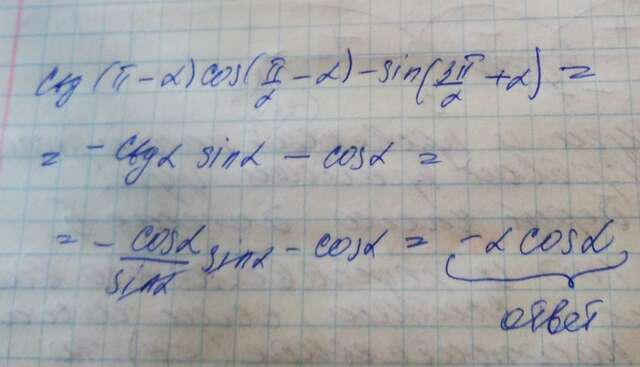 ctg (π - α) cos(π/2 - α) - sin(3π/2 + α) =
= - ctgα sinα - cosα =
= - cosα/sinα sinα - cosα = -2 cosα
ответ